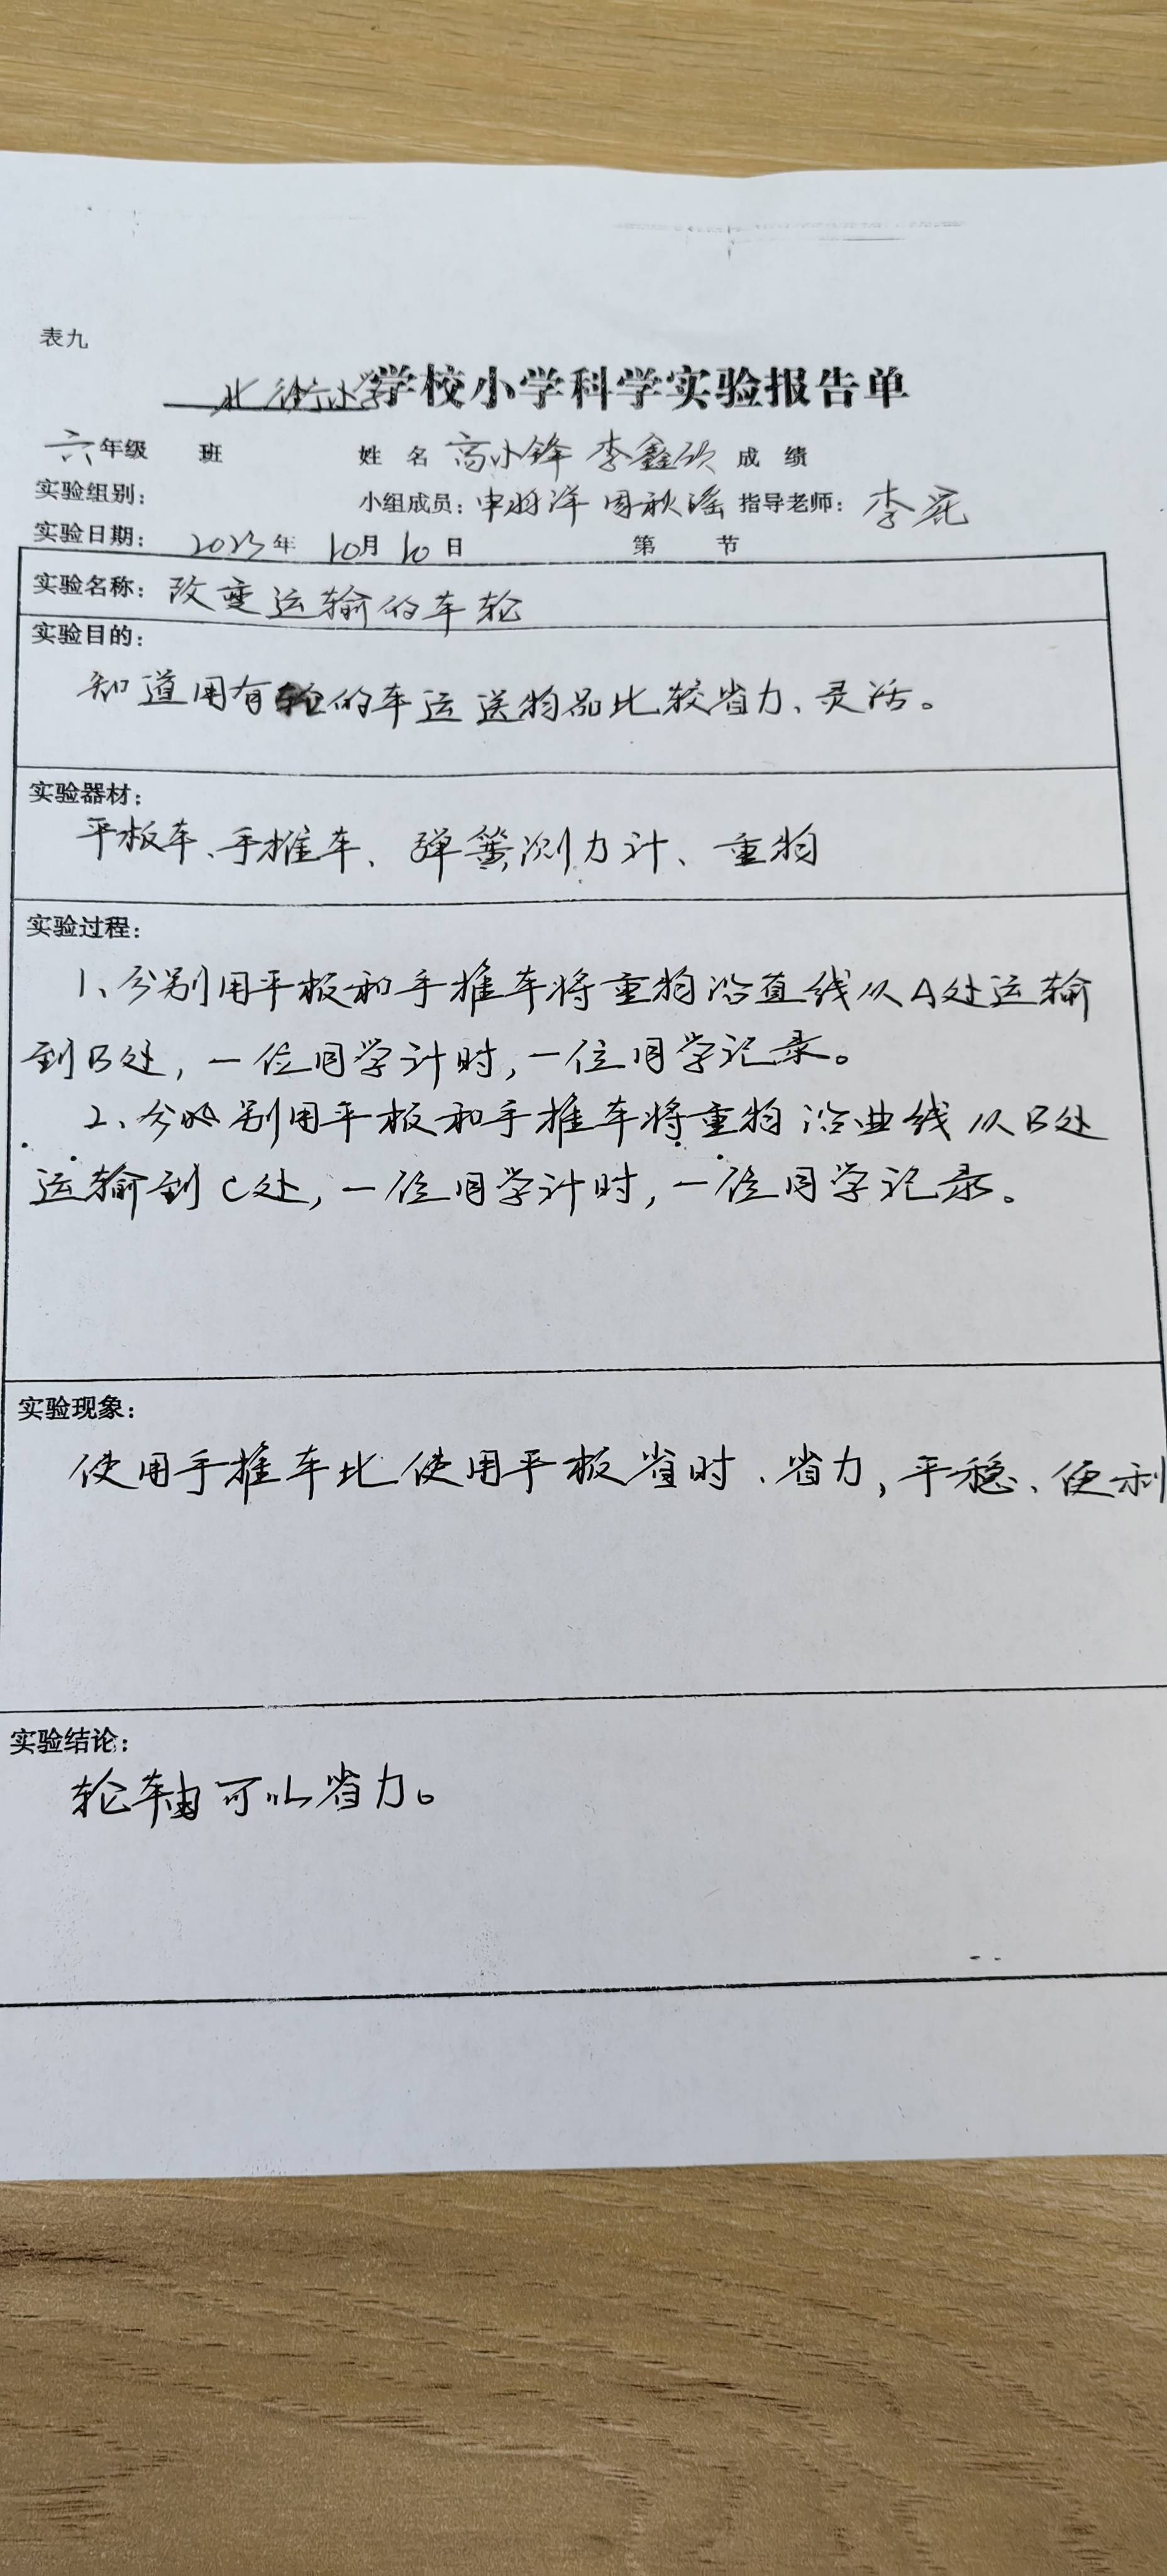 表九
学校小学科学实验报告单
六年级 班 姓 名 高小锋 李鑫欣 成 绩
实验组别: 小组成员: 申羽洋 周秋瑶 指导老师: 李
实验日期: 2023年 10月 10日 第 节
实验名称: 改变运输的车轮
实验目的:
知道用有轮的车运送物品比较省力、灵活。
实验器材:
平板车、手推车、弹簧测力计、重物
实验过程:
1、分别用平板和手推车将重物沿直线从A处运输
到B处,一位同学计时,一位同学记录。
2、分别用平板和手推车将重物沿曲线从B处
运输到C处,一位同学计时,一位同学记录。
实验现象:
使用手推车比使用平板省时、省力,平稳、便利
实验结论:
轮轴可以省力。